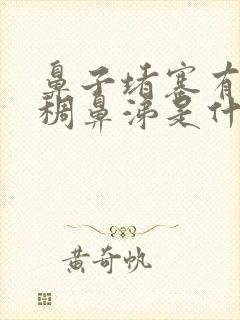 鼻子堵塞有
稠鼻涕是什
黄奇帆